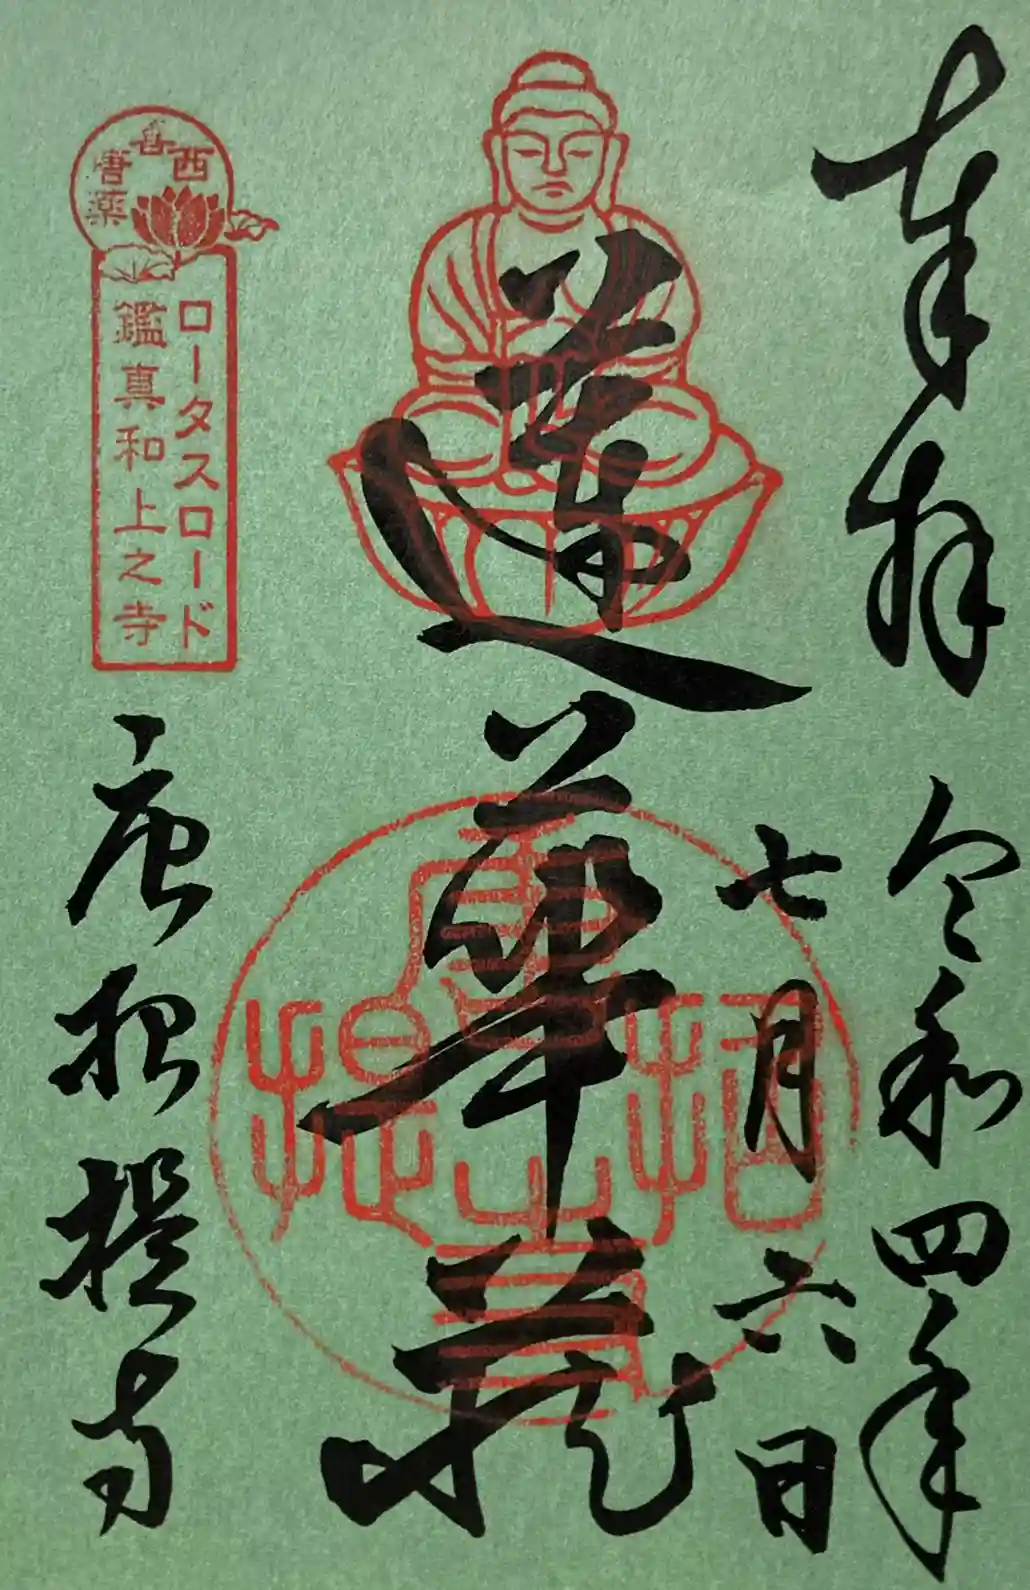 奉拝
令和四年
七月六日
蓮華蔵
西
ロータスロード
鑑真和上之寺
唐招提寺